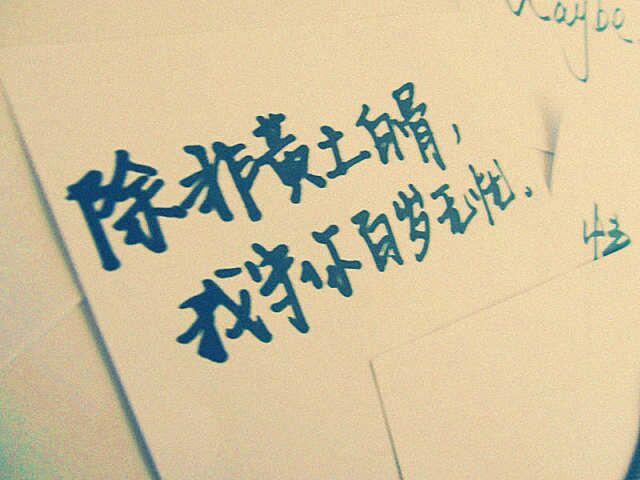 Maybe.
除非黃土白骨，
我守你百岁无忧.